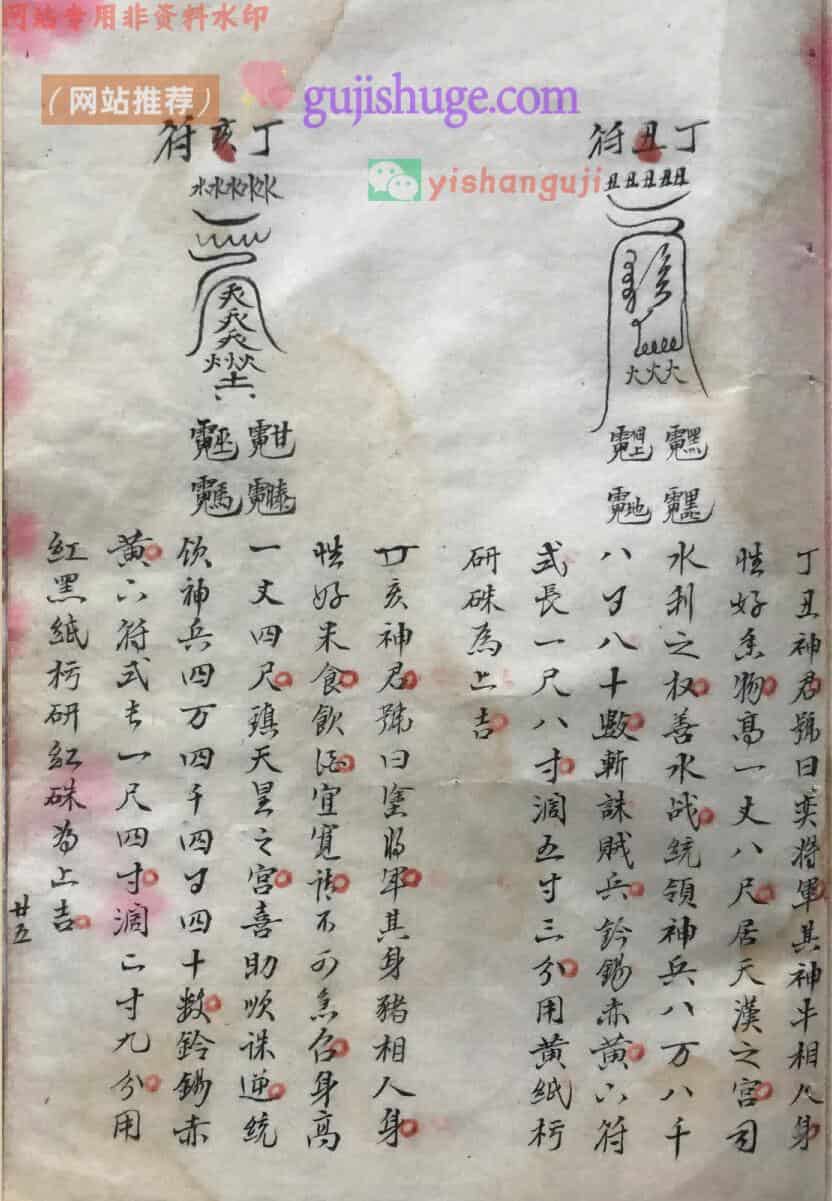 网站专用非资料水印
（网站推荐）
gujishuge.com
yishanguji
丁丑符
丑丑丑丑丑
火火火
丁丑神君號曰奕將軍其神牛相人身
性好魚物高一丈八尺居天漢之宮司
水利之权善水战統領神兵八万八千
八百八十數斬誅賊兵鈐錫赤黄六符
式長一尺八寸濶五寸三分用黄紙朽
研硃為上吉
丁亥符
水水水水水
火火火
丁亥神君號曰塗將軍其身豬相人身
性好米食飲酒宜寬請不可急召身高
一丈四尺鎮天星之宮喜助顺诛逆統
饮神兵四万四千四百四十数鈴錫赤
黄六符式长一尺四寸濶二寸九分用
紅黑紙朽研紅硃为上吉
廿五